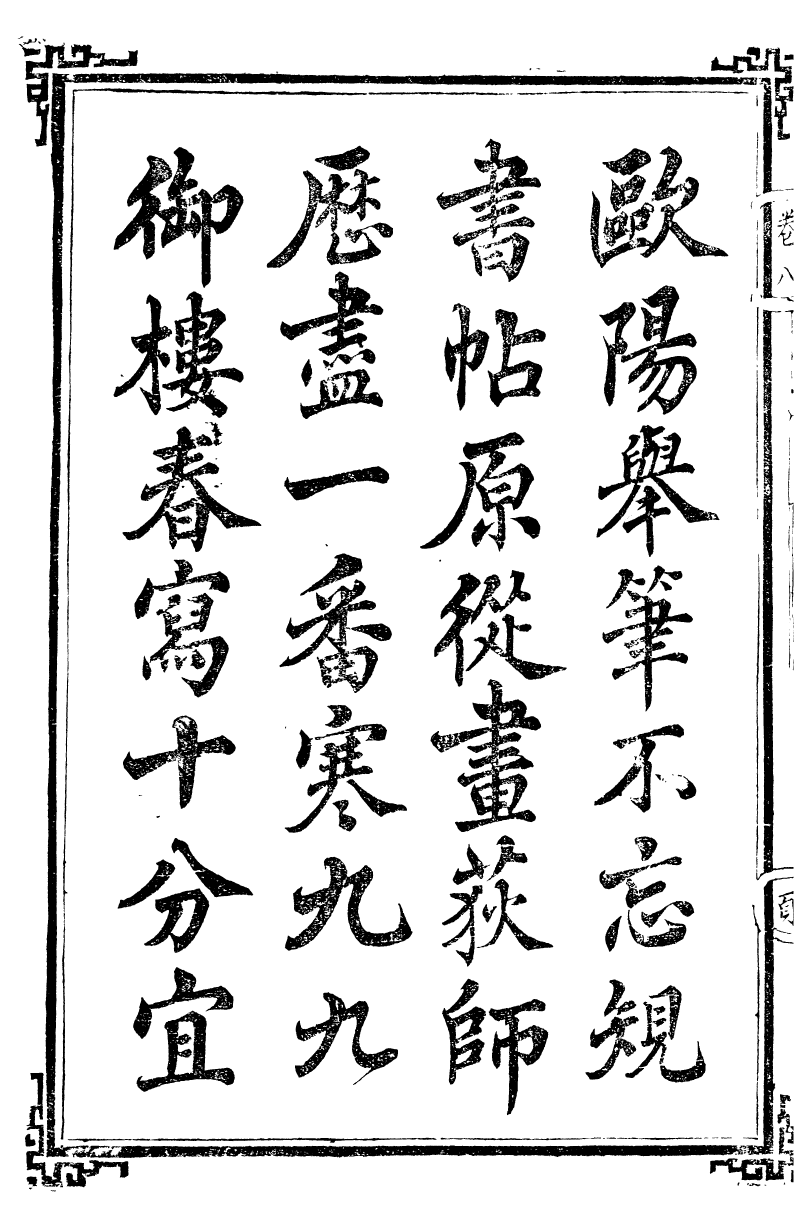 歐陽舉筆不忘規
書帖原從畫荻師
歷盡一番寒九九
御樓春寫十分宜
卷八